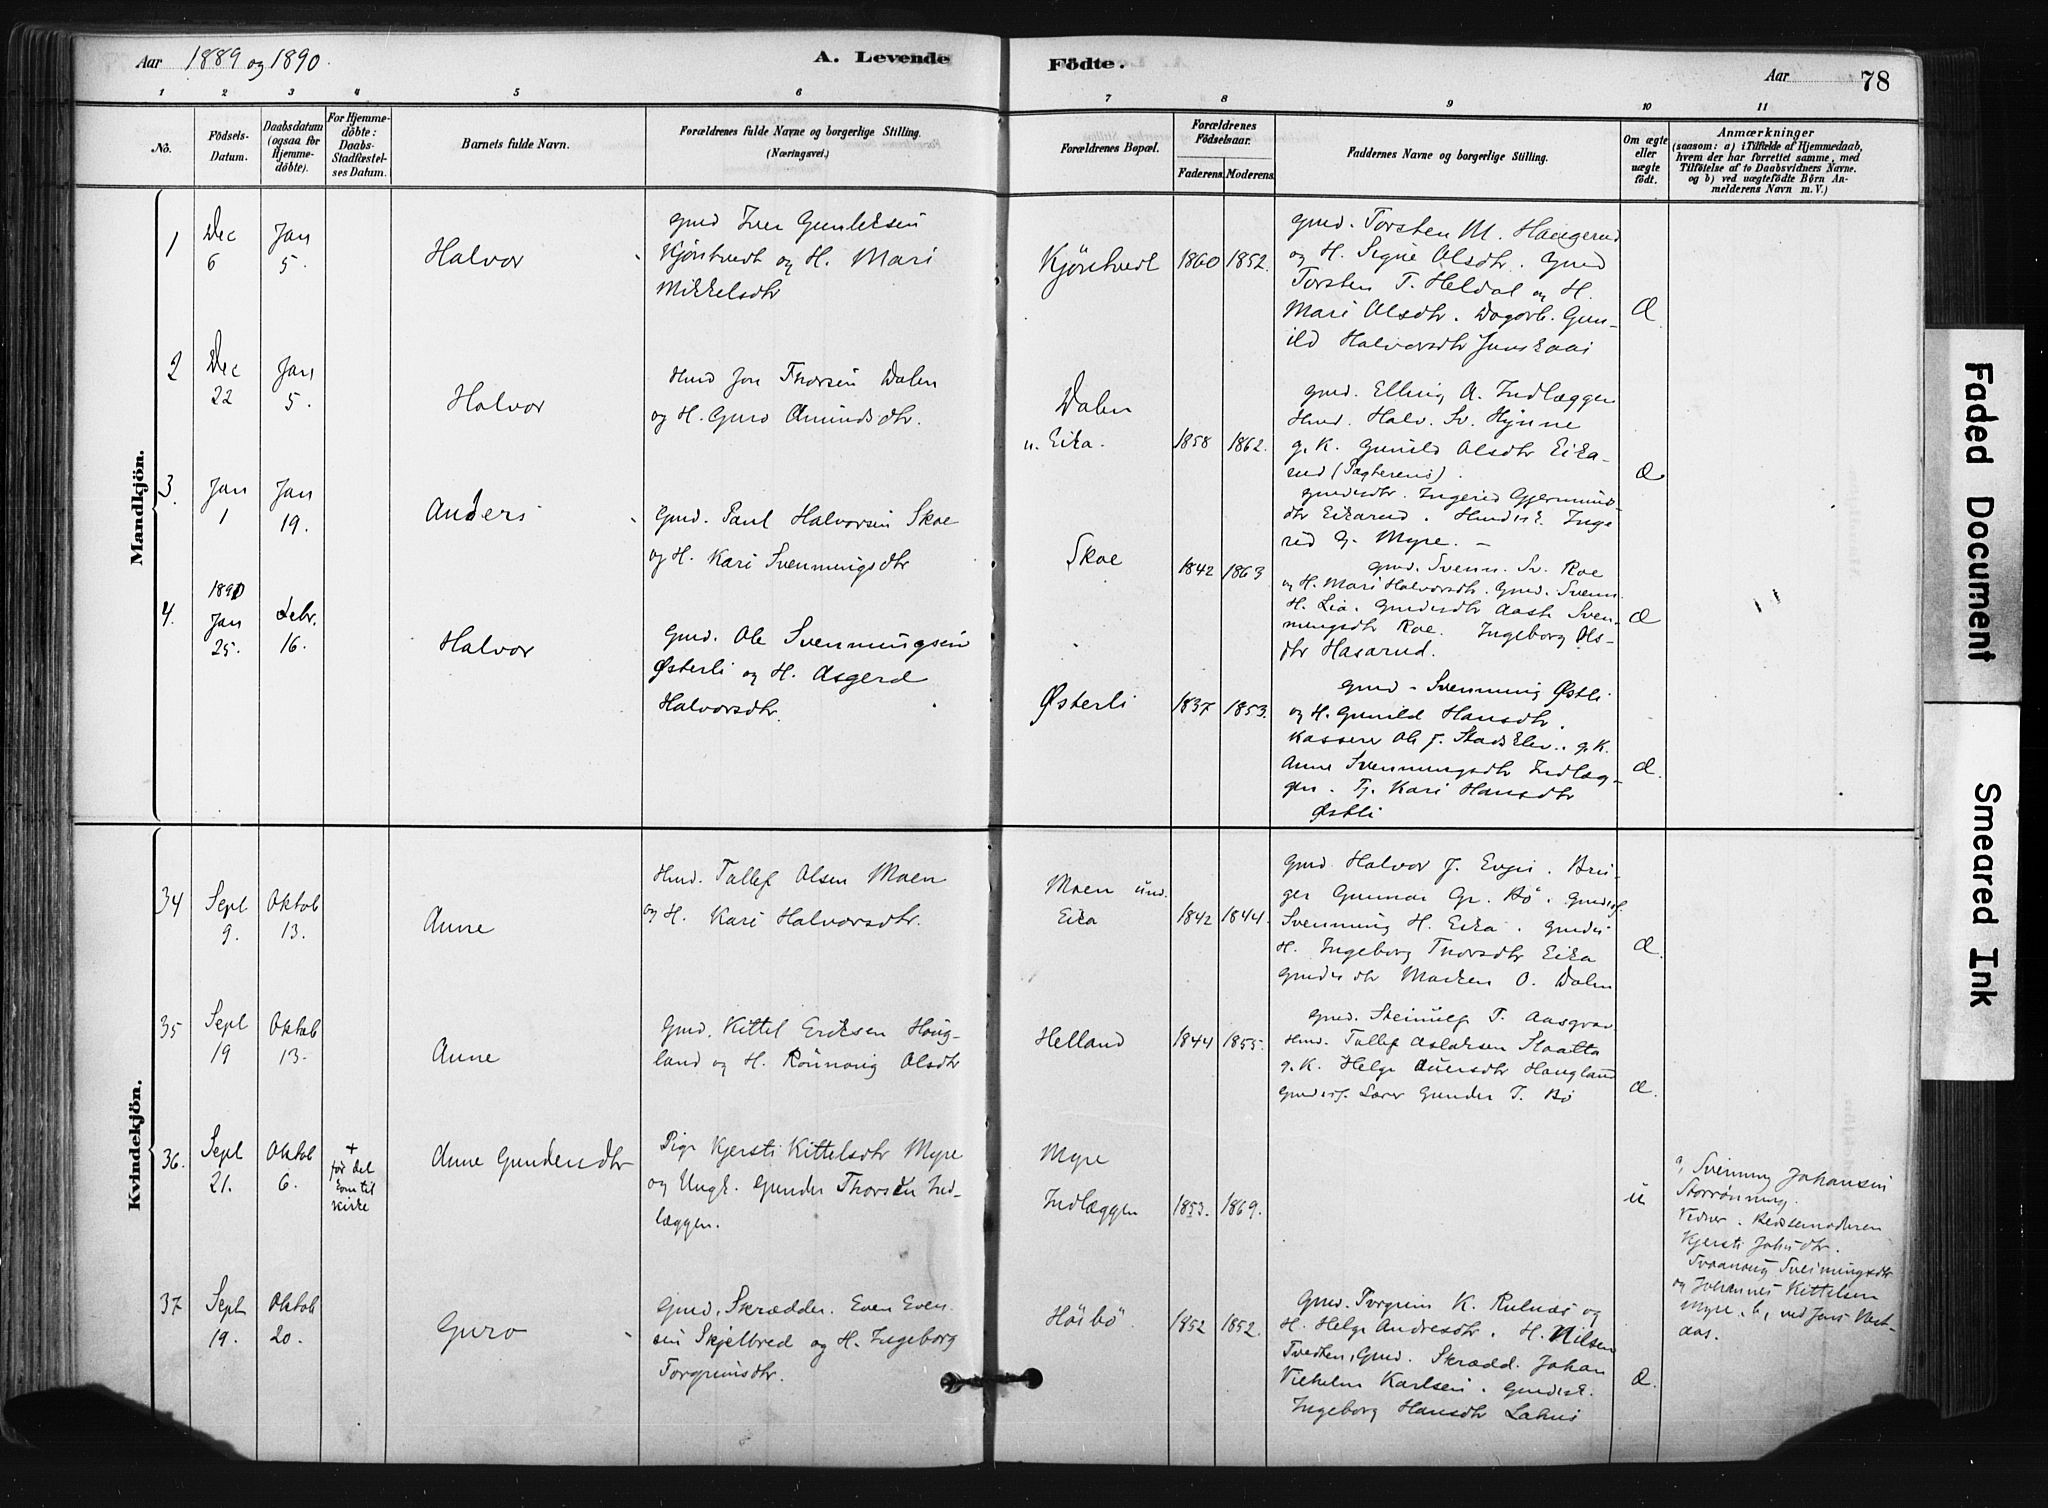 Aar 1889 og 1890.
A. Levende
Födte.
Aar
78
1 2 3 4 5 6 7 8 9 10 11
No.
Födsels-
Datum.
Daabsdatum
(ogsaa for
Hjemme-
döbte).
For Hjemme-
döbte:
Daabs-
Stadfæstel-
ses Datum.
Barnets fulde Navn.
Forældrenes fulde Navne og borgerlige Stilling.
(Næringsvei.)
Forældrenes Bopæl.
Forældrenes
Födselsaar.
Faderens. Moderens.
Faddernes Navne og borgerlige Stilling.
Om ægte
eller
uægte
födt.
Anmærkninger
(saasom: a) i Tilfælde af Hjemmedaab,
hvem der har forrettet samme, med
Tilföielse af to Daabsvidners Navne.
og b) ved uægtefödte Börn An-
melderens Navn m. V.)
Mandkjön.
1
Dec
6
Jan
5.
Halvor
Gmd Iver Gunleksen
Kjöntvedt og H. Mari
Mikkelsdtr
Kjöntvedt
1860 1852.
Gmd. Torsten M. Haugerud
og H. Signe Olsdtr. Gmd
Torsten T. Heldal og H.
Mari Olsdtr. Dagarb. Gun-
ild Halvorsdtr
Æ.
2
Dec
22
Jan
5.
Halvor
Hmd Jon Thorsen Dalen
og H. Guro Amundsdtr.
Dalen
u. Eika.
1858 1862.
Gmd. Elling A. Indlæggen
Hmd. Halv. Sv. Hynne
g. K. Gunild Olsdtr Eika-
rud (Pagterens).
gmdsdtr. Ingerid Gjermunds
dtr Eikarud. Inge
rid G. Myre. –
Æ
3.
Jan
1
Jan
19.
Anders
Gmd. Paul Halvorsen Skoe
og H. Kari Svenningsdtr
Skoe
1842 1863
Gmd. Svenn. Sv. Roe
og H. Mari Halvorsdtr. Gmd. Svenn.
H. Lia. Gmdsdtr Aaste Sven-
ningsdtr Roe. Ingeborg Ols-
dtr Hasarud.
Æ
4.
1890
Jan
25.
Febr.
16.
Halvor
Gmd. Ole Svenningsen
Østerli og H. Asgerd
Halvorsdtr.
Østerli
1837 1853.
Gmd – Svenning Østli
og H. Gunild Hansdtr.
Kasserer Ole J. Stadskleiv. g. K.
Anne Svenningsdtr Indlæg-
gen. Tj. Kari Hansdtr
Østli
Æ.
Kvindekjön.
34
Sept
9.
Oktob
13.
Anne
Hmd. Tallef Olsen Moen
og H. Kari Halvorsdtr.
Moen und.
Eika
1842 1844.
Gmd. Halvor J. Bru-
ger Gunnar Gr. Bö. Gmdss.
Svenning H. Eika. Gmds
H. Ingeborg Thorsdtr Eika
Gmds dtr Maren O. Dalen
Æ.
35
Sept
19
Oktob
13.
Anne
Gmd. Kittel Eriksen Houg-
land og H. Rönnoug Olsdtr
Helland
1844 1855.
Gmd. Steinulf T. Aasgrav
Hmd. Tallef Aslaksen Slaatta
g. K. Helge Hougland
Gmdss. Lærer Gunder T. Bö
Æ.
36.
Sept
21.
Oktob
6.
+
før det
kom til
kirke
Anne Gundersdtr
Pige Kjersti Kittelsdtr Myre
og Ungk. Gunder Thorsen Ind-
læggen.
Myre
Indlæggen
1853. 1869.
u
a, Svenning Johansen
Storrönning.
Vidner. Bedstemoderen
Kjersti Johsdtr.
Svenningsdtr
og Johannes Kittelsen
Myre. b, ved Jens Vest-
aas.
37
Sept
19.
Oktob
20.
Guro
Gmd. Skrædder. Even Even-
sen Skjelbred og H. Ingeborg
Torgrimsdtr.
Höibö.
1852 1852.
Gmd. Torgrim K. Rulnæs og
H. Helge Andresdtr. H. Nilsen
Tvedten, Gmd. Skrædd. Johan
Vilhelm Karlsen. Gmdsk.
Ingeborg Hansdtr
Æ.
Faded Document
Smeared Ink